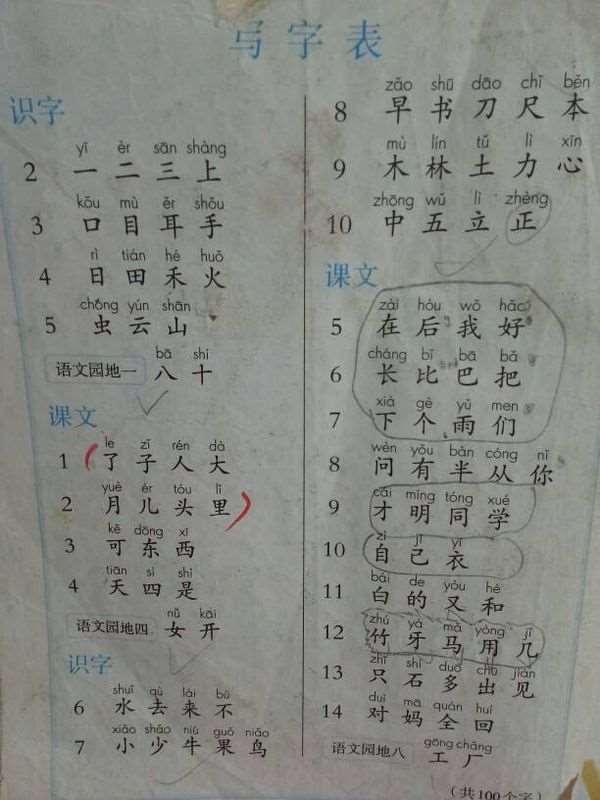 写字表
识字
yī èr sān shàng
2 一 二 三 上
kǒu mù ěr shǒu
3 口 目 耳 手
rì tián hé huǒ
4 日 田 禾 火
chóng yún shān
5 虫 云 山
bā shí
语文园地一 八 十
课文
le zǐ rén dà
1 了 子 人 大
yuè ér tóu lǐ
2 月 儿 头 里
kě dōng xī
3 可 东 西
tiān sì shì
4 天 四 是
nǚ kāi
语文园地四 女 开
识字
shuǐ qù lái bù
6 水 去 来 不
xiǎo shǎo niú guǒ niǎo
7 小 少 牛 果 鸟
zǎo shū dāo chǐ běn
8 早 书 刀 尺 本
mù lín tǔ lì xīn
9 木 林 土 力 心
zhōng wǔ lì zhèng
10 中 五 立 正
课文
zài hòu wǒ hǎo
5 在 后 我 好
cháng bǐ bā bǎ
6 长 比 巴 把
xià gè yǔ men
7 下 个 雨 们
wèn yǒu bàn cóng nǐ
8 问 有 半 从 你
cái míng tóng xué
9 才 明 同 学
zì jǐ yī
10 自 己 衣
bái de yòu hé
11 白 的 又 和
zhú yá mǎ yòng jǐ
12 竹 牙 马 用 几
zhǐ shí duō chū jiàn
13 只 石 多 出 见
duì mā quán huí
14 对 妈 全 回
gōng chǎng
语文园地八 工 厂
(共100个字)